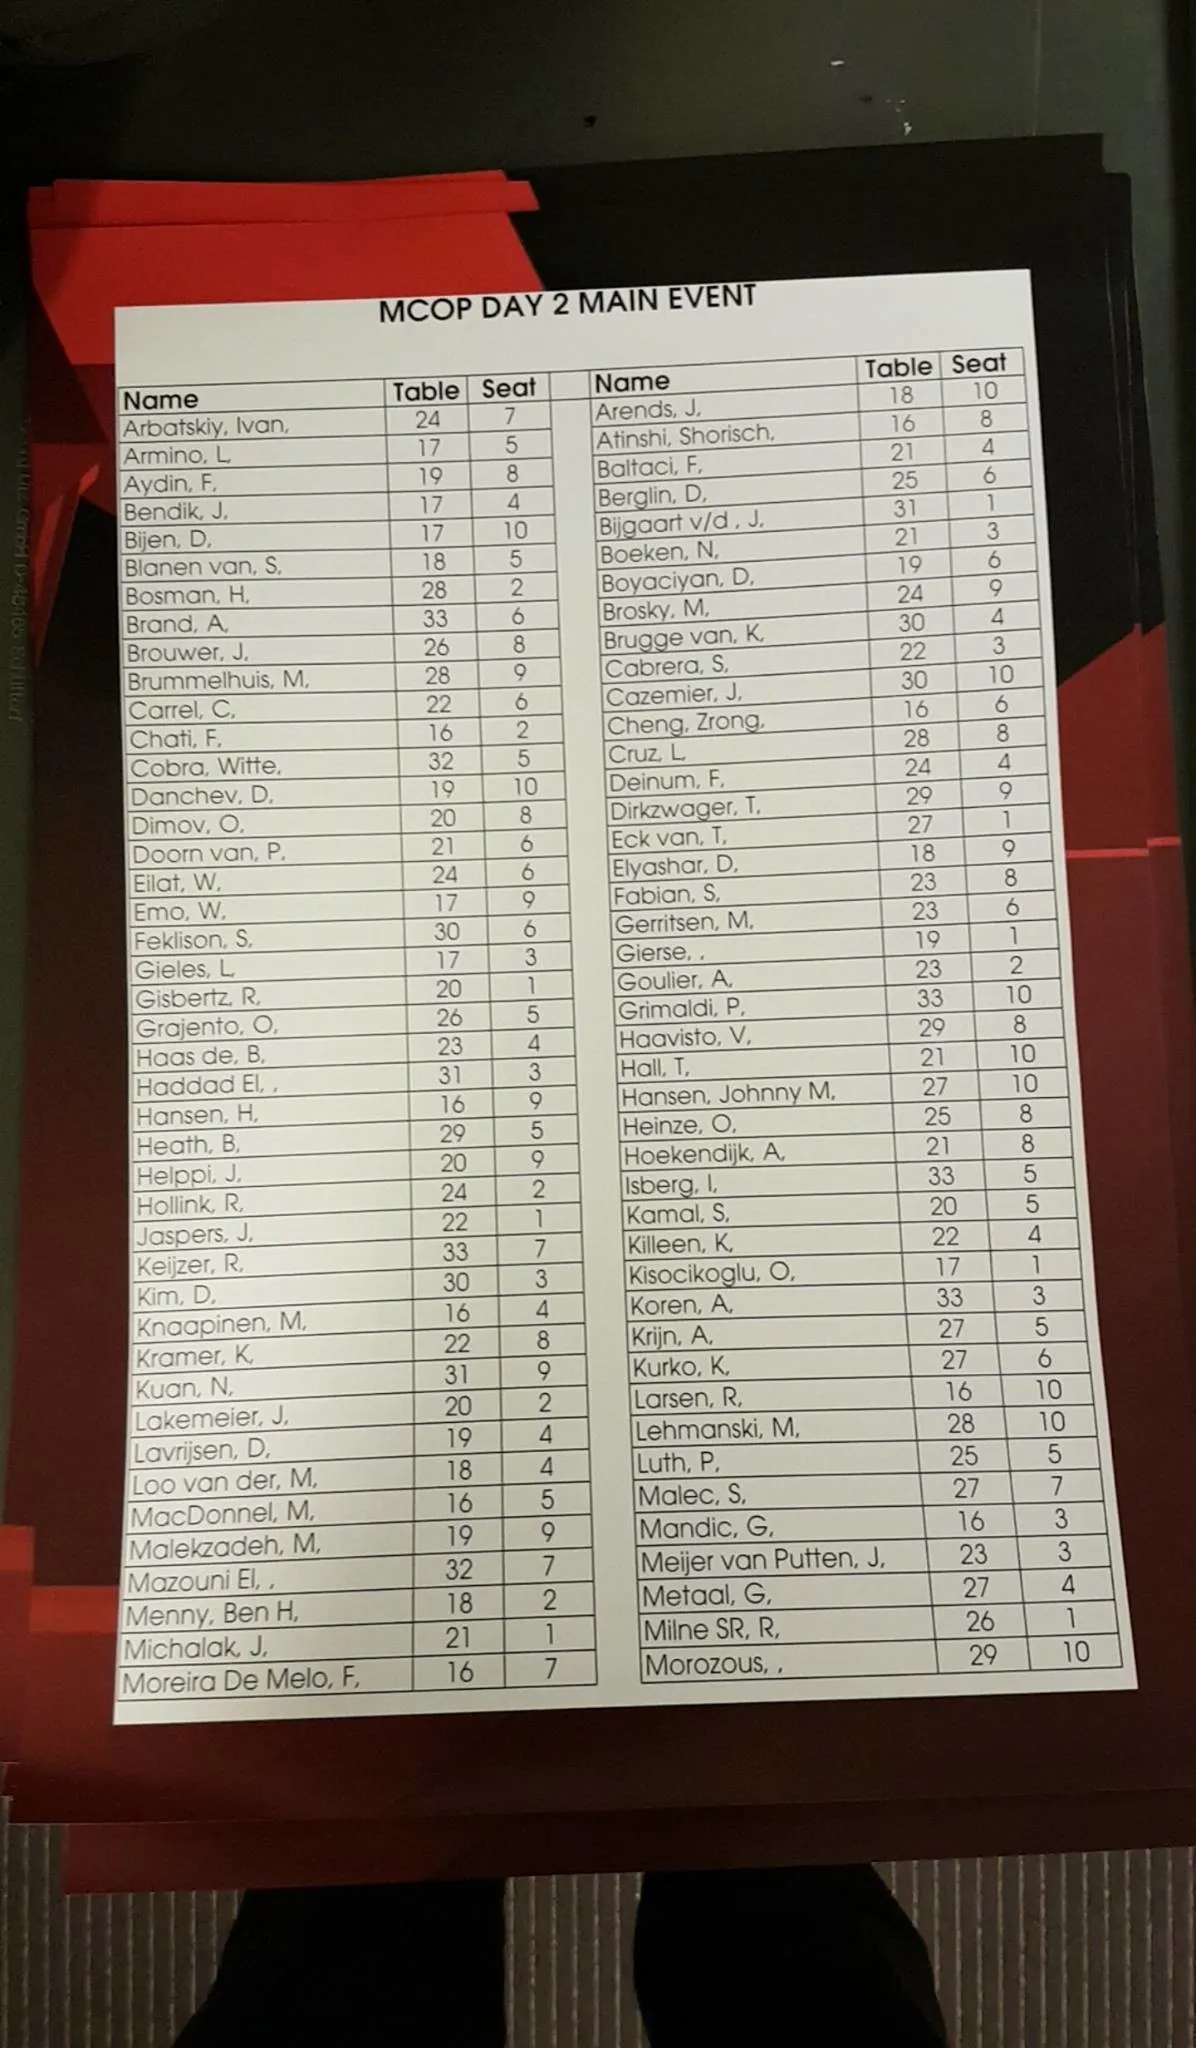 MCOP DAY 2 MAIN EVENT
Name Table Seat Name Table Seat
Arbatskiy, Ivan, 24 7 Arends, J, 18 10
Armino, L, 17 5 Atinshi, Shorisch, 16 8
Aydin, F, 19 8 Baltaci, F, 21 4
Bendik, J, 17 4 Berglin, D, 25 6
Bijen, D, 17 10 Bijgaart v/d , J, 31 1
Blanen van, S, 18 5 Boeken, N, 21 3
Bosman, H, 28 2 Boyaciyan, D, 19 6
Brand, A, 33 6 Brosky, M, 24 9
Brouwer, J, 26 8 Brugge van, K, 30 4
Brummelhuis, M, 28 9 Cabrera, S, 22 3
Carrel, C, 22 6 Cazemier, J, 30 10
Chati, F, 16 2 Cheng, Zrong, 16 6
Cobra, Witte, 32 5 Cruz, L, 28 8
Danchev, D, 19 10 Deinum, F, 24 4
Dimov, O, 20 8 Dirkzwager, T, 29 9
Doorn van, P, 21 6 Eck van, T, 27 1
Eilat, W, 24 6 Elyashar, D, 18 9
Emo, W, 17 9 Fabian, S, 23 8
Feklison, S, 30 6 Gerritsen, M, 23 6
Gieles, L, 17 3 Gierse, , 19 1
Gisbertz, R, 20 1 Goulier, A, 23 2
Grajento, O, 26 5 Grimaldi, P, 33 10
Haas de, B, 23 4 Haavisto, V, 29 8
Haddad El, , 31 3 Hall, T, 21 10
Hansen, H, 16 9 Hansen, Johnny M, 27 10
Heath, B, 29 5 Heinze, O, 25 8
Helppi, J, 20 9 Hoekendijk, A, 21 8
Hollink, R, 24 2 Isberg, I, 33 5
Jaspers, J, 22 1 Kamal, S, 20 5
Keijzer, R, 33 7 Killeen, K, 22 4
Kim, D, 30 3 Kisocikoglu, O, 17 1
Knaapinen, M, 16 4 Koren, A, 33 3
Kramer, K, 22 8 Krijn, A, 27 5
Kuan, N, 31 9 Kurko, K, 27 6
Lakemeier, J, 20 2 Larsen, R, 16 10
Lavrijsen, D, 19 4 Lehmanski, M, 28 10
Loo van der, M, 18 4 Luth, P, 25 5
MacDonnel, M, 16 5 Malec, S, 27 7
Malekzadeh, M, 19 9 Mandic, G, 16 3
Mazouni El, , 32 7 Meijer van Putten, J, 23 3
Menny, Ben H, 18 2 Metaal, G, 27 4
Michalak, J, 21 1 Milne SR, R, 26 1
Moreira De Melo, F, 16 7 Morozous, , 29 10